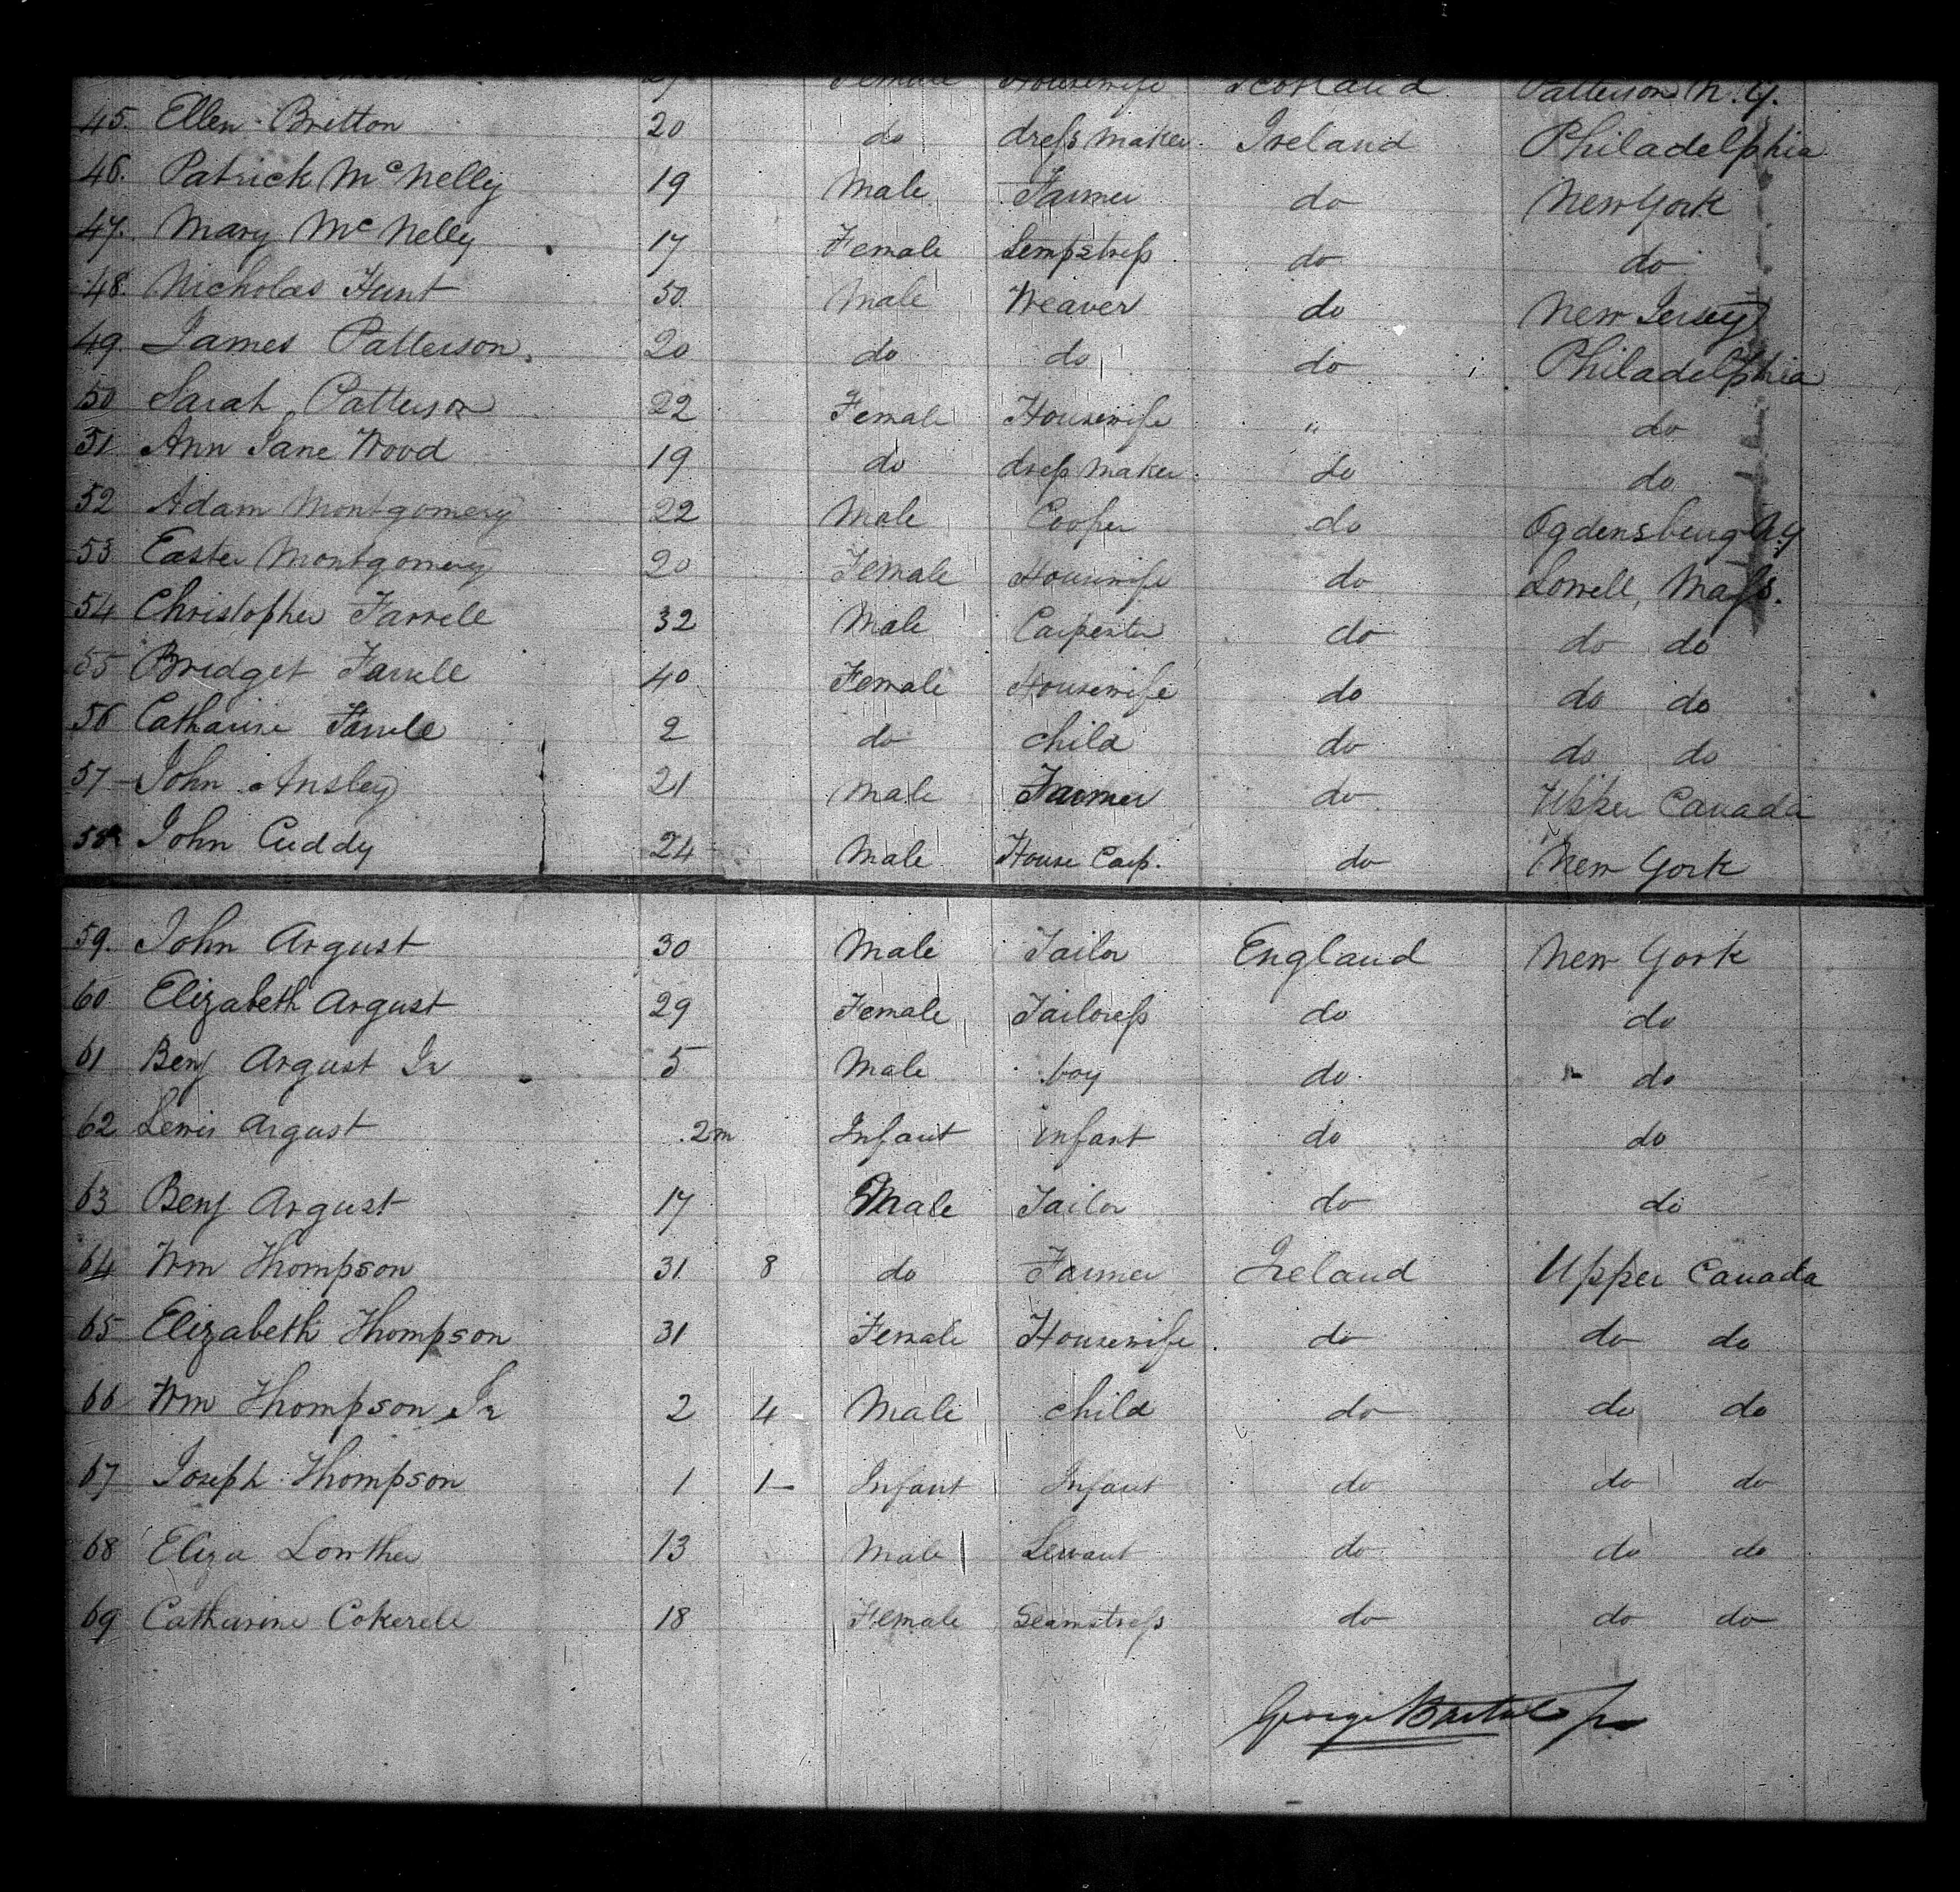 Female Housewife Scotland Patterson N. Y.
45. Ellen Britton 20 do dress maker. Ireland Philadelphia
46. Patrick McNelly 19 Male Farmer do New York
47. Mary McNelly 17 Female Sempstress do do
48. Nicholas Hunt 50 Male Weaver do New Jersey
49. James Patterson. 20 do do do Philadelphia
50 Sarah Patterson 22 Female Housewife " do
51 Ann Jane Wood 19 do dress maker do do
52 Adam Montgomery 22 Male Cooper do Ogdensburg N.Y
53 Easter Montgomery 20 Female Housewife do Lowell, Mass.
54 Christopher Farrell 32 Male Carpenter do do do
55 Bridget Farrell 40 Female Housewife do do do
56 Catharine Farrell 2 do child do do do
57 John Ansley 21 Male Farmer do Upper Canada
58 John Cuddy 24 Male House Carp. do New York
59. John Argust 30 Male Tailor England New York
60 Elizabeth Argust 29 Female Tailoress do do
61 Benj Argust Jr 5 Male boy do do
62 Lewis Argust 2m Infant infant do do
63 Benj Argust 17 Male Tailor do do
64 Wm Thompson 31 8 do Farmer Ireland Upper Canada
65 Elizabeth Thompson 31 Female Housewife do do do
66 Wm Thompson Jr 2 4 Male child do do do
67 Joseph Thompson 1 1 Infant Infant do do do
68 Eliza Lowther 13 Male Servant do do do
69 Catharine Cokerell 18 Female Seamstress do do do
George